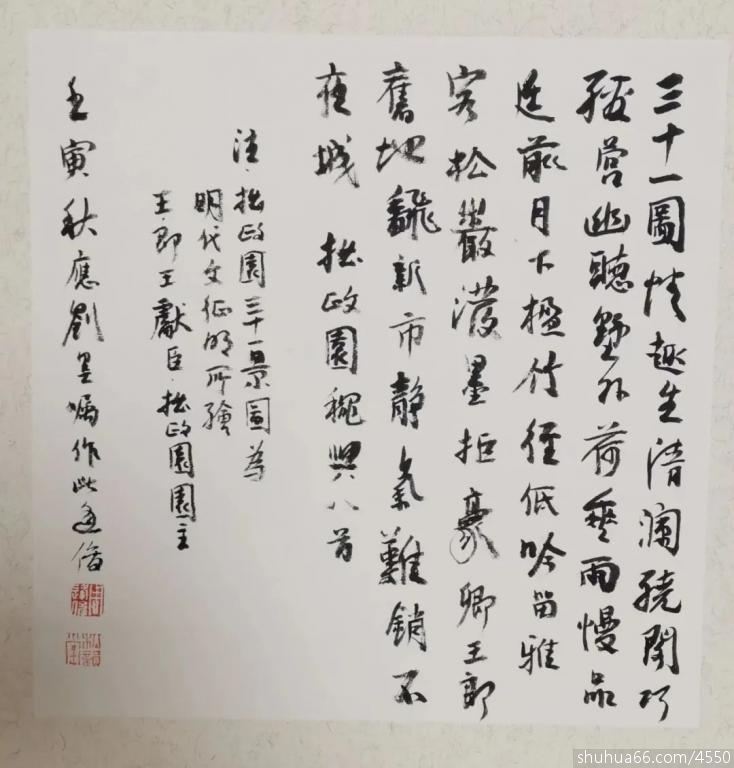 三十一圖情趣生清澜繞閣巧
營幽聽墅外荷垂雨慢品
廷前月下楹竹徑低吟留雅
客松叢潑墨拒豪卿王郎
舊地翻新市靜氣難銷不
夜城 拙政園雜興八首
注拙政園三十一景圖為
明代文征明所繪
王即王獻臣拙政園園主
壬寅秋應劉墨嘱作此
shuhua66.com/4550